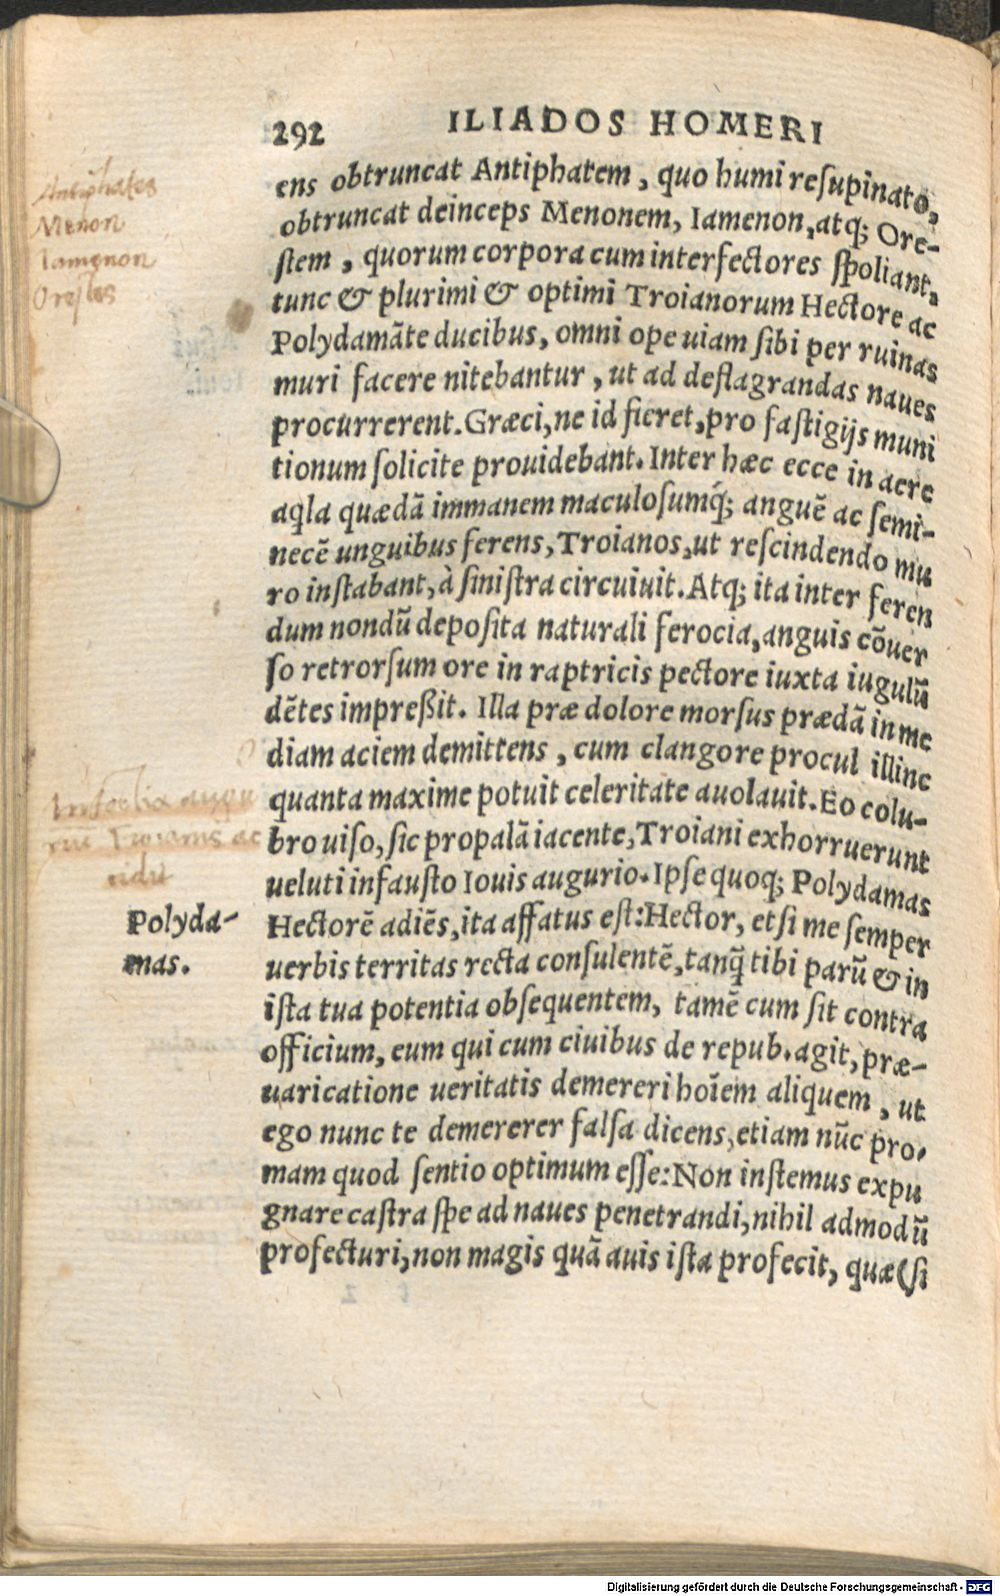 292 ILIADOS HOMERI
ens obtruncat Antiphatem, quo humi resupinato,
obtruncat deinceps Menonem, Iamenon, atq; Ore-
stem, quorum corpora cum interfectores spoliant,
tunc & plurimi & optimi Troianorum Hectore ac
Polydamāte ducibus, omni ope uiam sibi per ruinas
muri facere nitebantur, ut ad deflagrandas naues
procurrerent. Græci, ne id fieret, pro fastigijs muni
tionum solicite prouidebant. Inter hæc ecce in aere
aq̃la quædã immanem maculosumq́; anguē ac semi-
necē unguibus ferens, Troianos, ut rescindendo mu
ro instabant, à sinistra circuiuit. Atq; ita inter feren
dum nondū deposita naturali ferocia, anguis cōuer
so retrorsum ore in raptricis pectore iuxta iugulū
dētes impreßit. Illa præ dolore morsus prædã in me
diam aciem demittens, cum clangore procul illinc
quanta maxime potuit celeritate auolauit. Eo colu-
bro uiso, sic propalã iacente, Troiani exhorruerunt
ueluti infausto Iouis augurio. Ipse quoq; Polydamas
Hectorē adiēs, ita affatus est: Hector, etsi me semper
uerbis territas recta consulentē, tanq̃ tibi parū & in
ista tua potentia obsequentem, tamē cum sit contra
officium, eum qui cum ciuibus de repub. agit, præ-
uaricatione ueritatis demereri hoīem aliquem, ut
ego nunc te demererer falsa dicens, etiam nūc pro-
mam quod sentio optimum esse: Non instemus expu
gnare castra spe ad naues penetrandi, nihil admodū
profecturi, non magis quã auis ista profecit, quæ (si
Antiphates
Menon
Iamenon
Orestes
Troianis ac
cidit
Polyda-
mas.
Digitalisierung gefördert durch die Deutsche Forschungsgemeinschaft - DFG